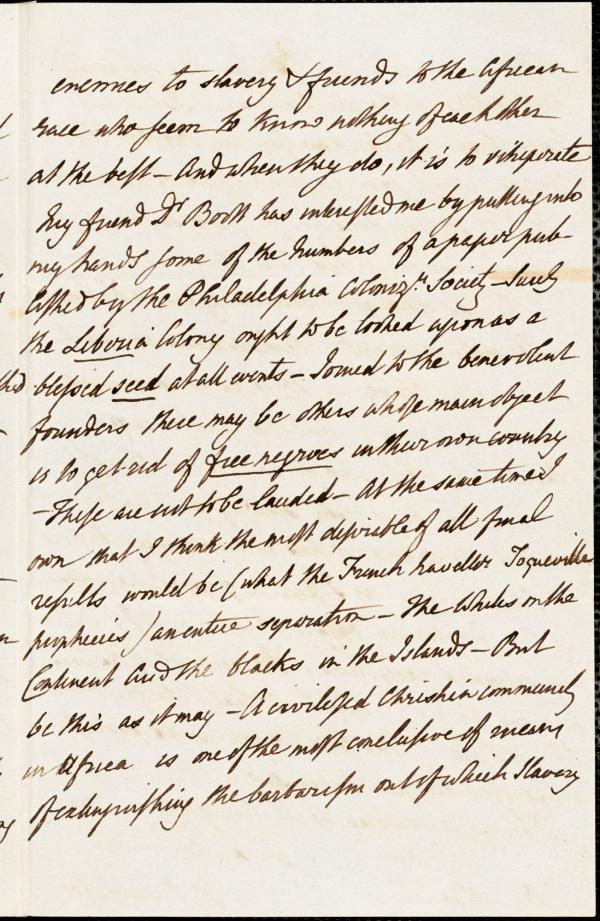 enemies to slavery & friends to the African
race who seem to know nothing of each other
at the best - And when they do, it is to vituperate
My friend Dr Boott has interested me by putting into
my hands some of the numbers of a paper pub-
lished by the Philadelphia Coloniz:n Society - Surely
the Liberia Colony ought to be looked upon as a
blessed seed at all events - Joined to the benevolent
founders there may be others whose main object
is to get rid of free negroes in their own country
- These are not to be lauded - At the same time I
own that I think the most desirable of all final
results would be (what the French traveller Toqueville
prophecies) an entire separation - The Whites on the
Continent and the blacks in the Islands - But
be this as it may - A civilised Christian community
in Africa is one of the most conclusive of means
of extinguishing the barbarism out of which Slavery